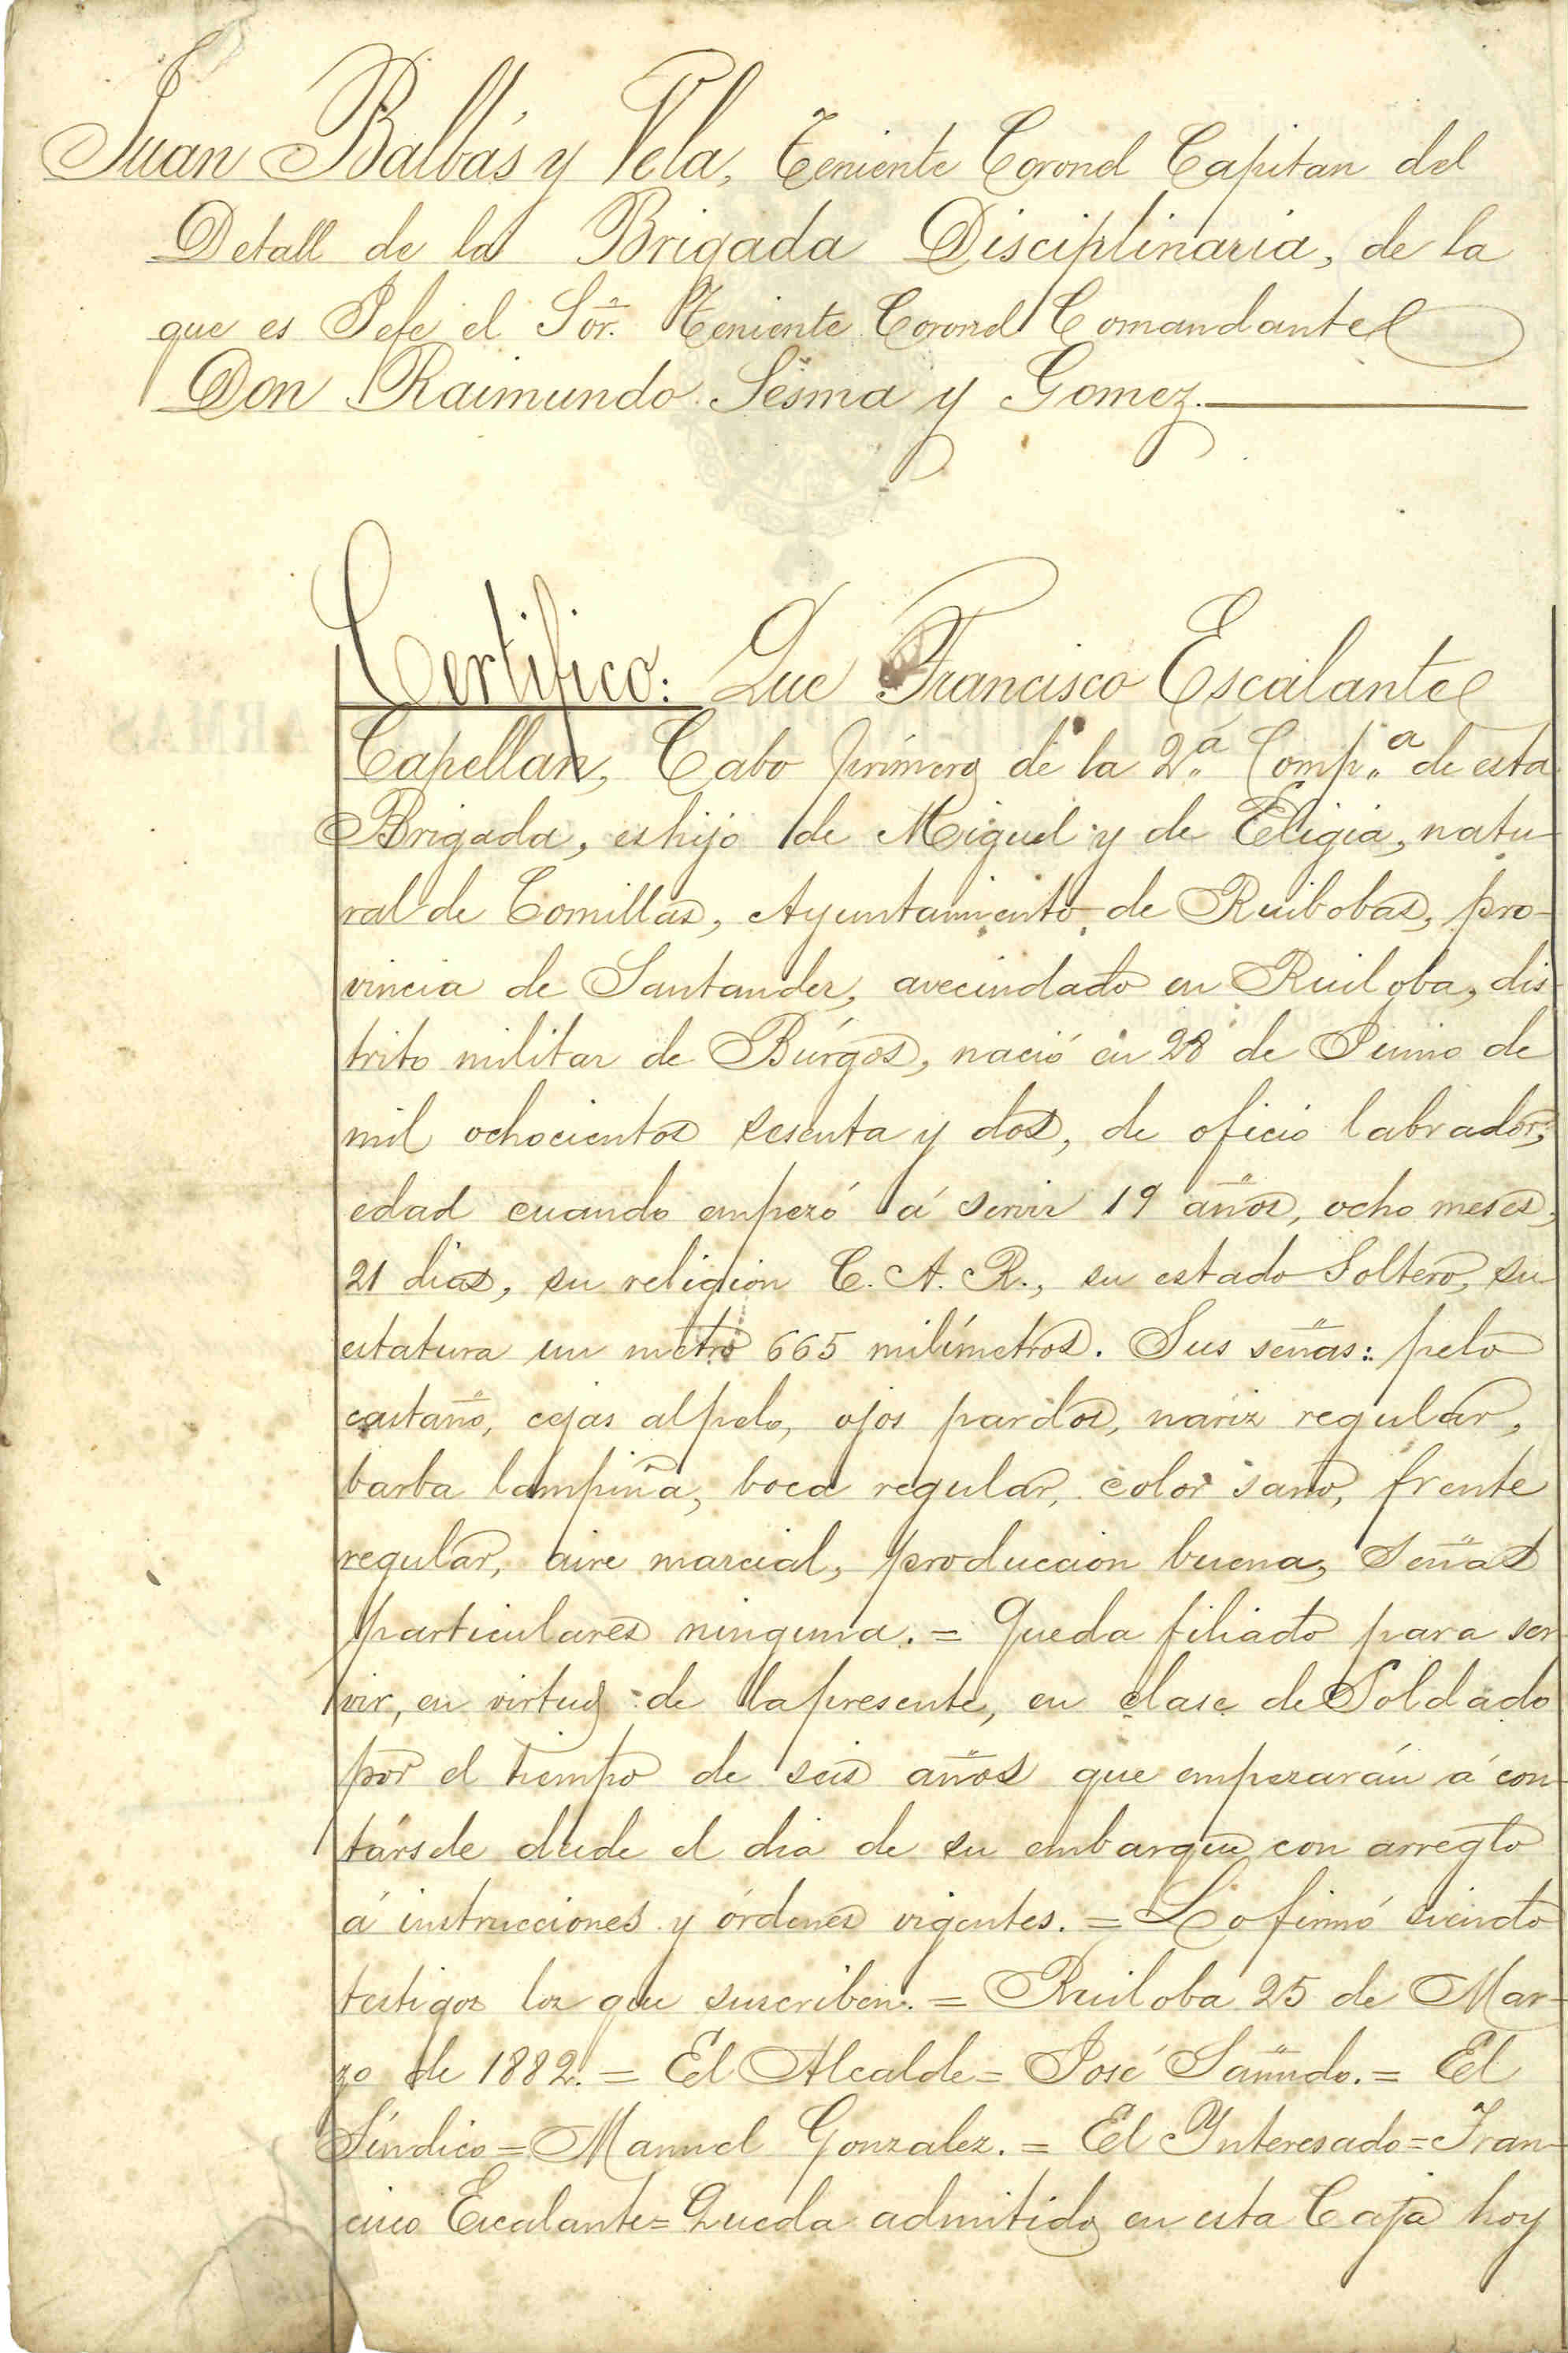 Juan Balbás y Vela, Teniente Coronel Capitan del
Detall de la Brigada Disciplinaria, de la
que es Jefe el Sor. Teniente Coronel Comandante
Don Raimundo Sesma y Gomez.
Certifico: Que Francisco Escalante
Capellan, Cabo primero de la 2.ª Comp.ª de esta
Brigada, es hijo de Miguel y de Eligia, natu-
ral de Comillas, Ayuntamiento de Ruibobas, pro-
vincia de Santander, avecindado en Ruiloba, dis-
trito militar de Búrgos, nació en 28 de Junio de
mil ochocientos sesenta y dos, de oficio labrador,
edad cuando empezó á servir 19 años, ocho meses,
21 dias, su religion C. A. R., su estado Soltero, su
estatura un metro 665 milímetros. Sus señas: pelo
castaño, cejas al pelo, ojos pardos, nariz regular,
barba lampiña, boca regular, color sano, frente
regular, aire marcial, produccion buena, Señas
particulares ninguna. = Queda filiado para ser
vir, en virtud de la presente, en clase de Soldado
por el tiempo de seis años que empezarán á con-
társele desde el dia de su embarque con arreglo
á instrucciones y órdenes vigentes. = Lo firmó siendo
testigos los que suscriben. = Ruiloba 25 de Mar-
zo de 1882. = El Alcalde = José = El
Síndico = Manuel Gonzalez. = El Interesado = Fran-
cisco Escalante = Queda admitido en esta Caja hoy
ARMAS